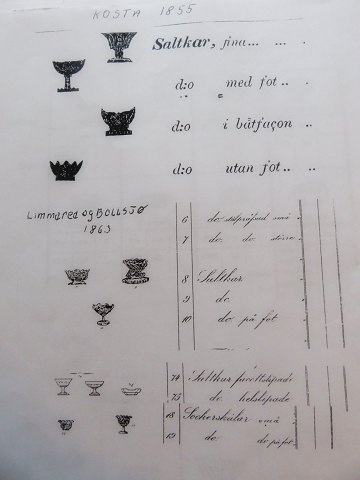 KOSTA 1855
Saltkar, fina... ... .
d:o med fot.. .
d:o i båtfaçon ..
d:o utan fot.. ..
Limmared og BOLLSJØ
1863
6 do små
7 do. do. större
8 Saltkar
9 do
10 do på fot
74 Saltkar facettslipade
75 do. helslipade
18 Sockerskålar små
19 do do på fot